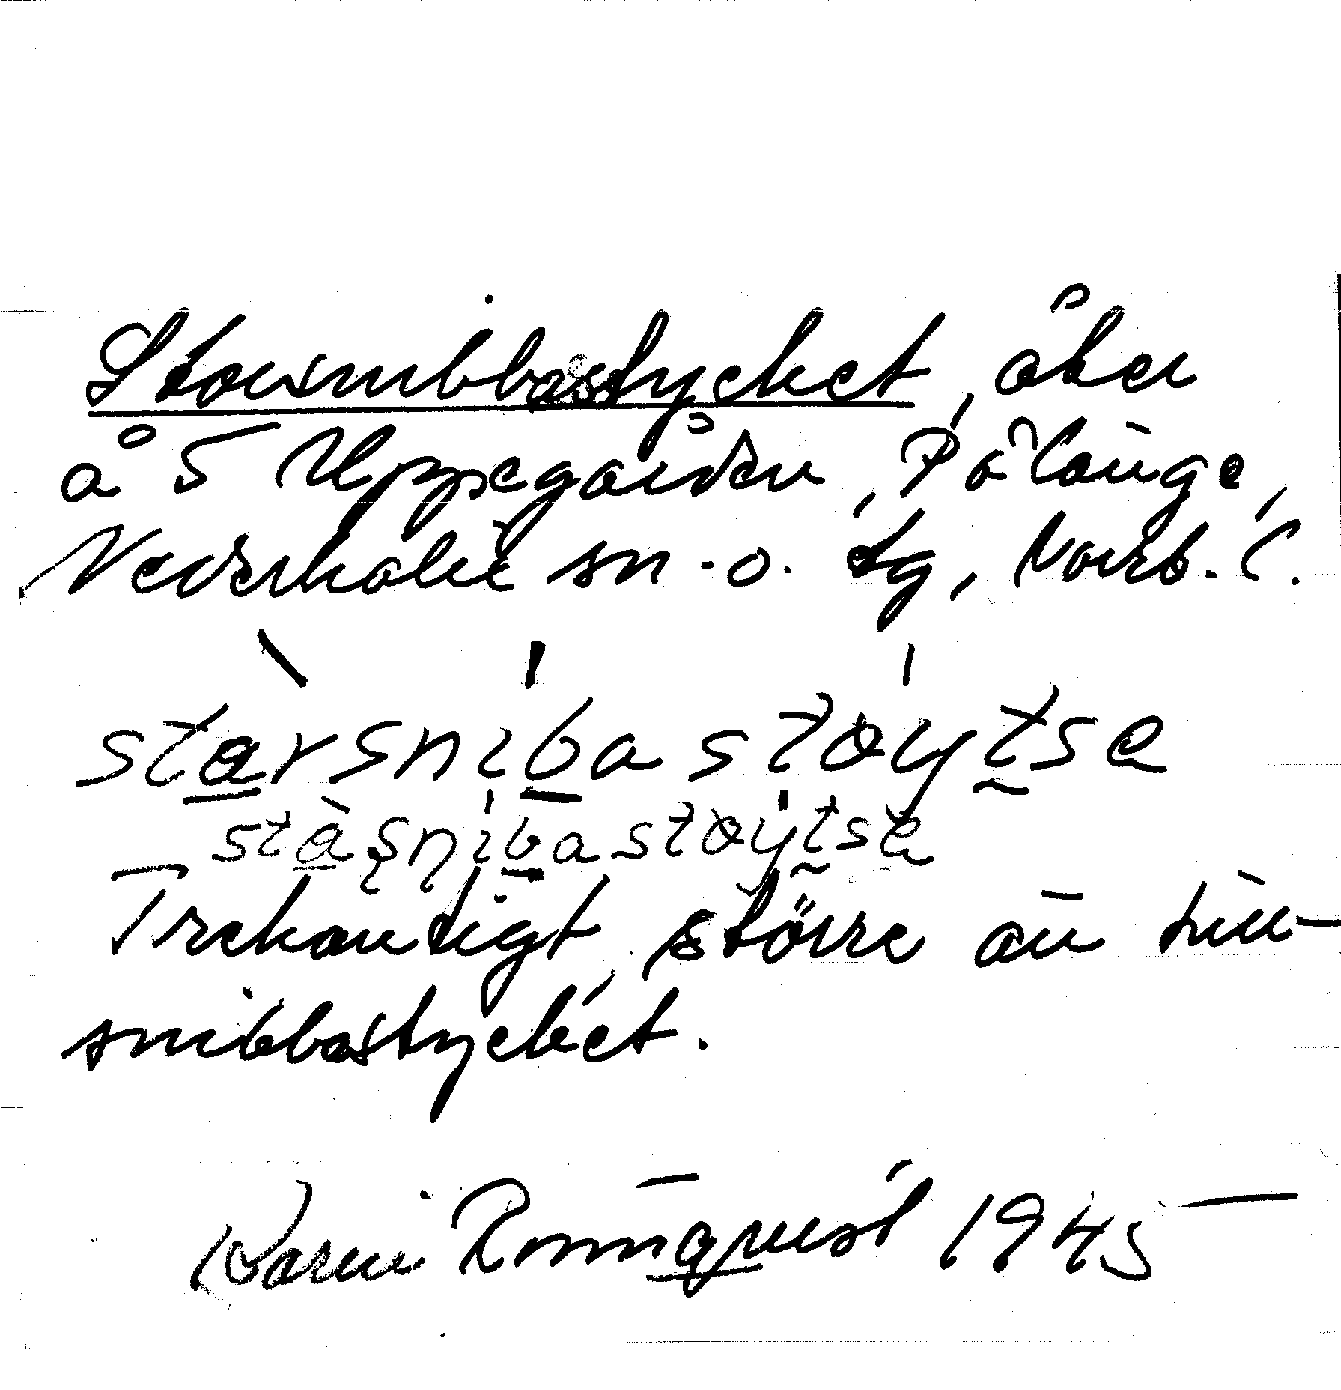 Storsnibbastycket, åker
å 5 Uppegården, Pålänge,
Nederkalix sn. o. tg, Norrb. l.
starsnibastøytse
stasnibastøytse
Trekantigt, större än lill-
snibbastycket.
Karin Rönnqvist 1945